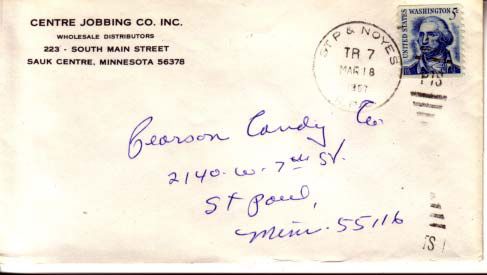 CENTRE JOBBING CO. INC.
WHOLESALE DISTRIBUTORS
223 - SOUTH MAIN STREET
SAUK CENTRE, MINNESOTA 56378
ST P & NOYES
TR 7
MAR 18
UNITED STATES
WASHINGTON 5¢
Pearson Candy Co
2140 - W - 7th St.
St Paul,
Minn - 55116